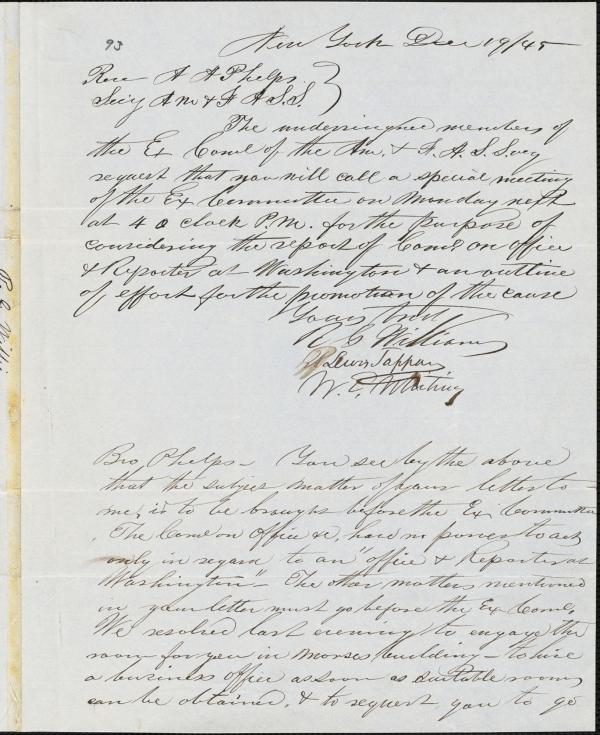 93
New York Dec 19/45
Rev A A Phelps
Sec'y Am & F A. S. S.
The undersigned members of
the Ex Com'e of the Am. & F. A. S. Socy
request that you will call a special meeting
of the Ex Committee on Monday next
at 4 o clock P.M. for the purpose of
considering the report of Come on office
& Reporter at Washington & an outline
of effort for the promotion of the cause
Yours truly
R G Williams
Lewis Tappan
W. E. Whiting
Bro Phelps - You see by the above
that the subject matter of your letter to
me, is to be brought before the Ex Committee
The Come on Office &c, have no power to act
only in regard to an "office & Reporter at
Washington" - The other matters mentioned
in your letter must go before the Ex Come.
We resolved last evening to engage the
room for you in Morses building - to hire
a business office as soon as suitable rooms
can be obtained, & to request you to go